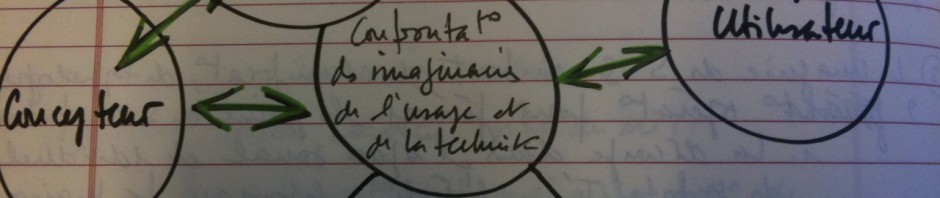 Utilisateur
Confrontat°
ds imaginaires
de l'usage et
de la technik
Concepteur